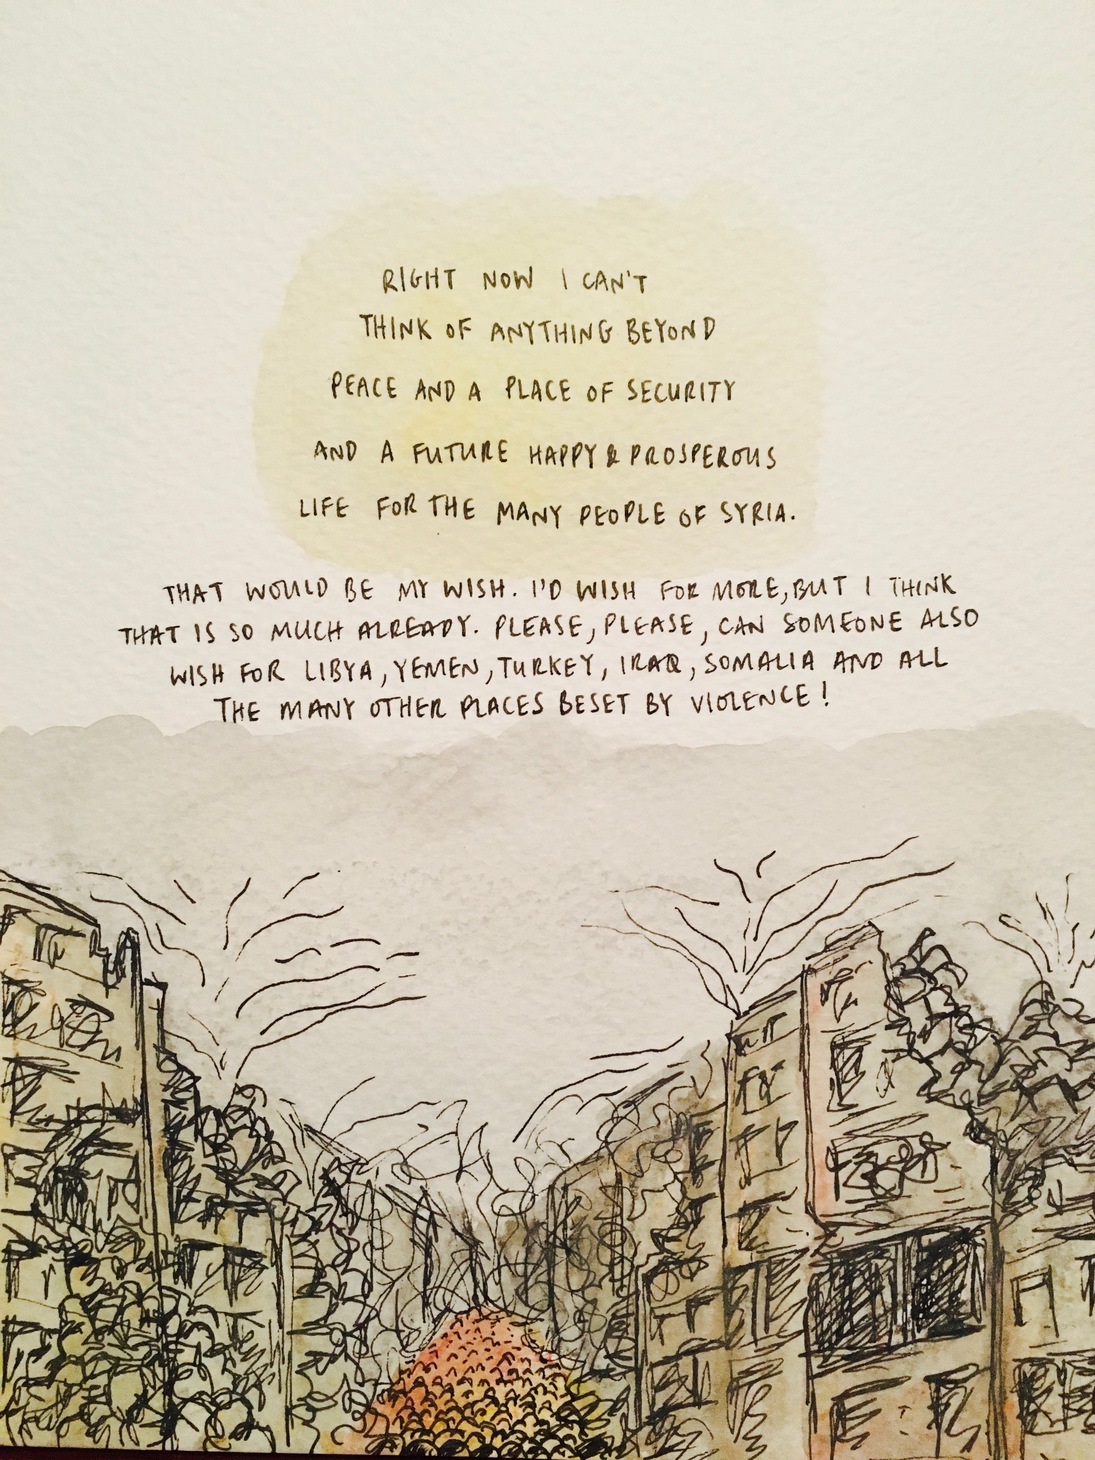 RIGHT NOW I CAN'T
THINK OF ANYTHING BEYOND
PEACE AND A PLACE OF SECURITY
AND A FUTURE HAPPY & PROSPEROUS
LIFE FOR THE MANY PEOPLE OF SYRIA.
THAT WOULD BE MY WISH. I'D WISH FOR MORE, BUT I THINK
THAT IS SO MUCH ALREADY. PLEASE, PLEASE, CAN SOMEONE ALSO
WISH FOR LIBYA, YEMEN, TURKEY, IRAQ, SOMALIA AND ALL
THE MANY OTHER PLACES BESET BY VIOLENCE!